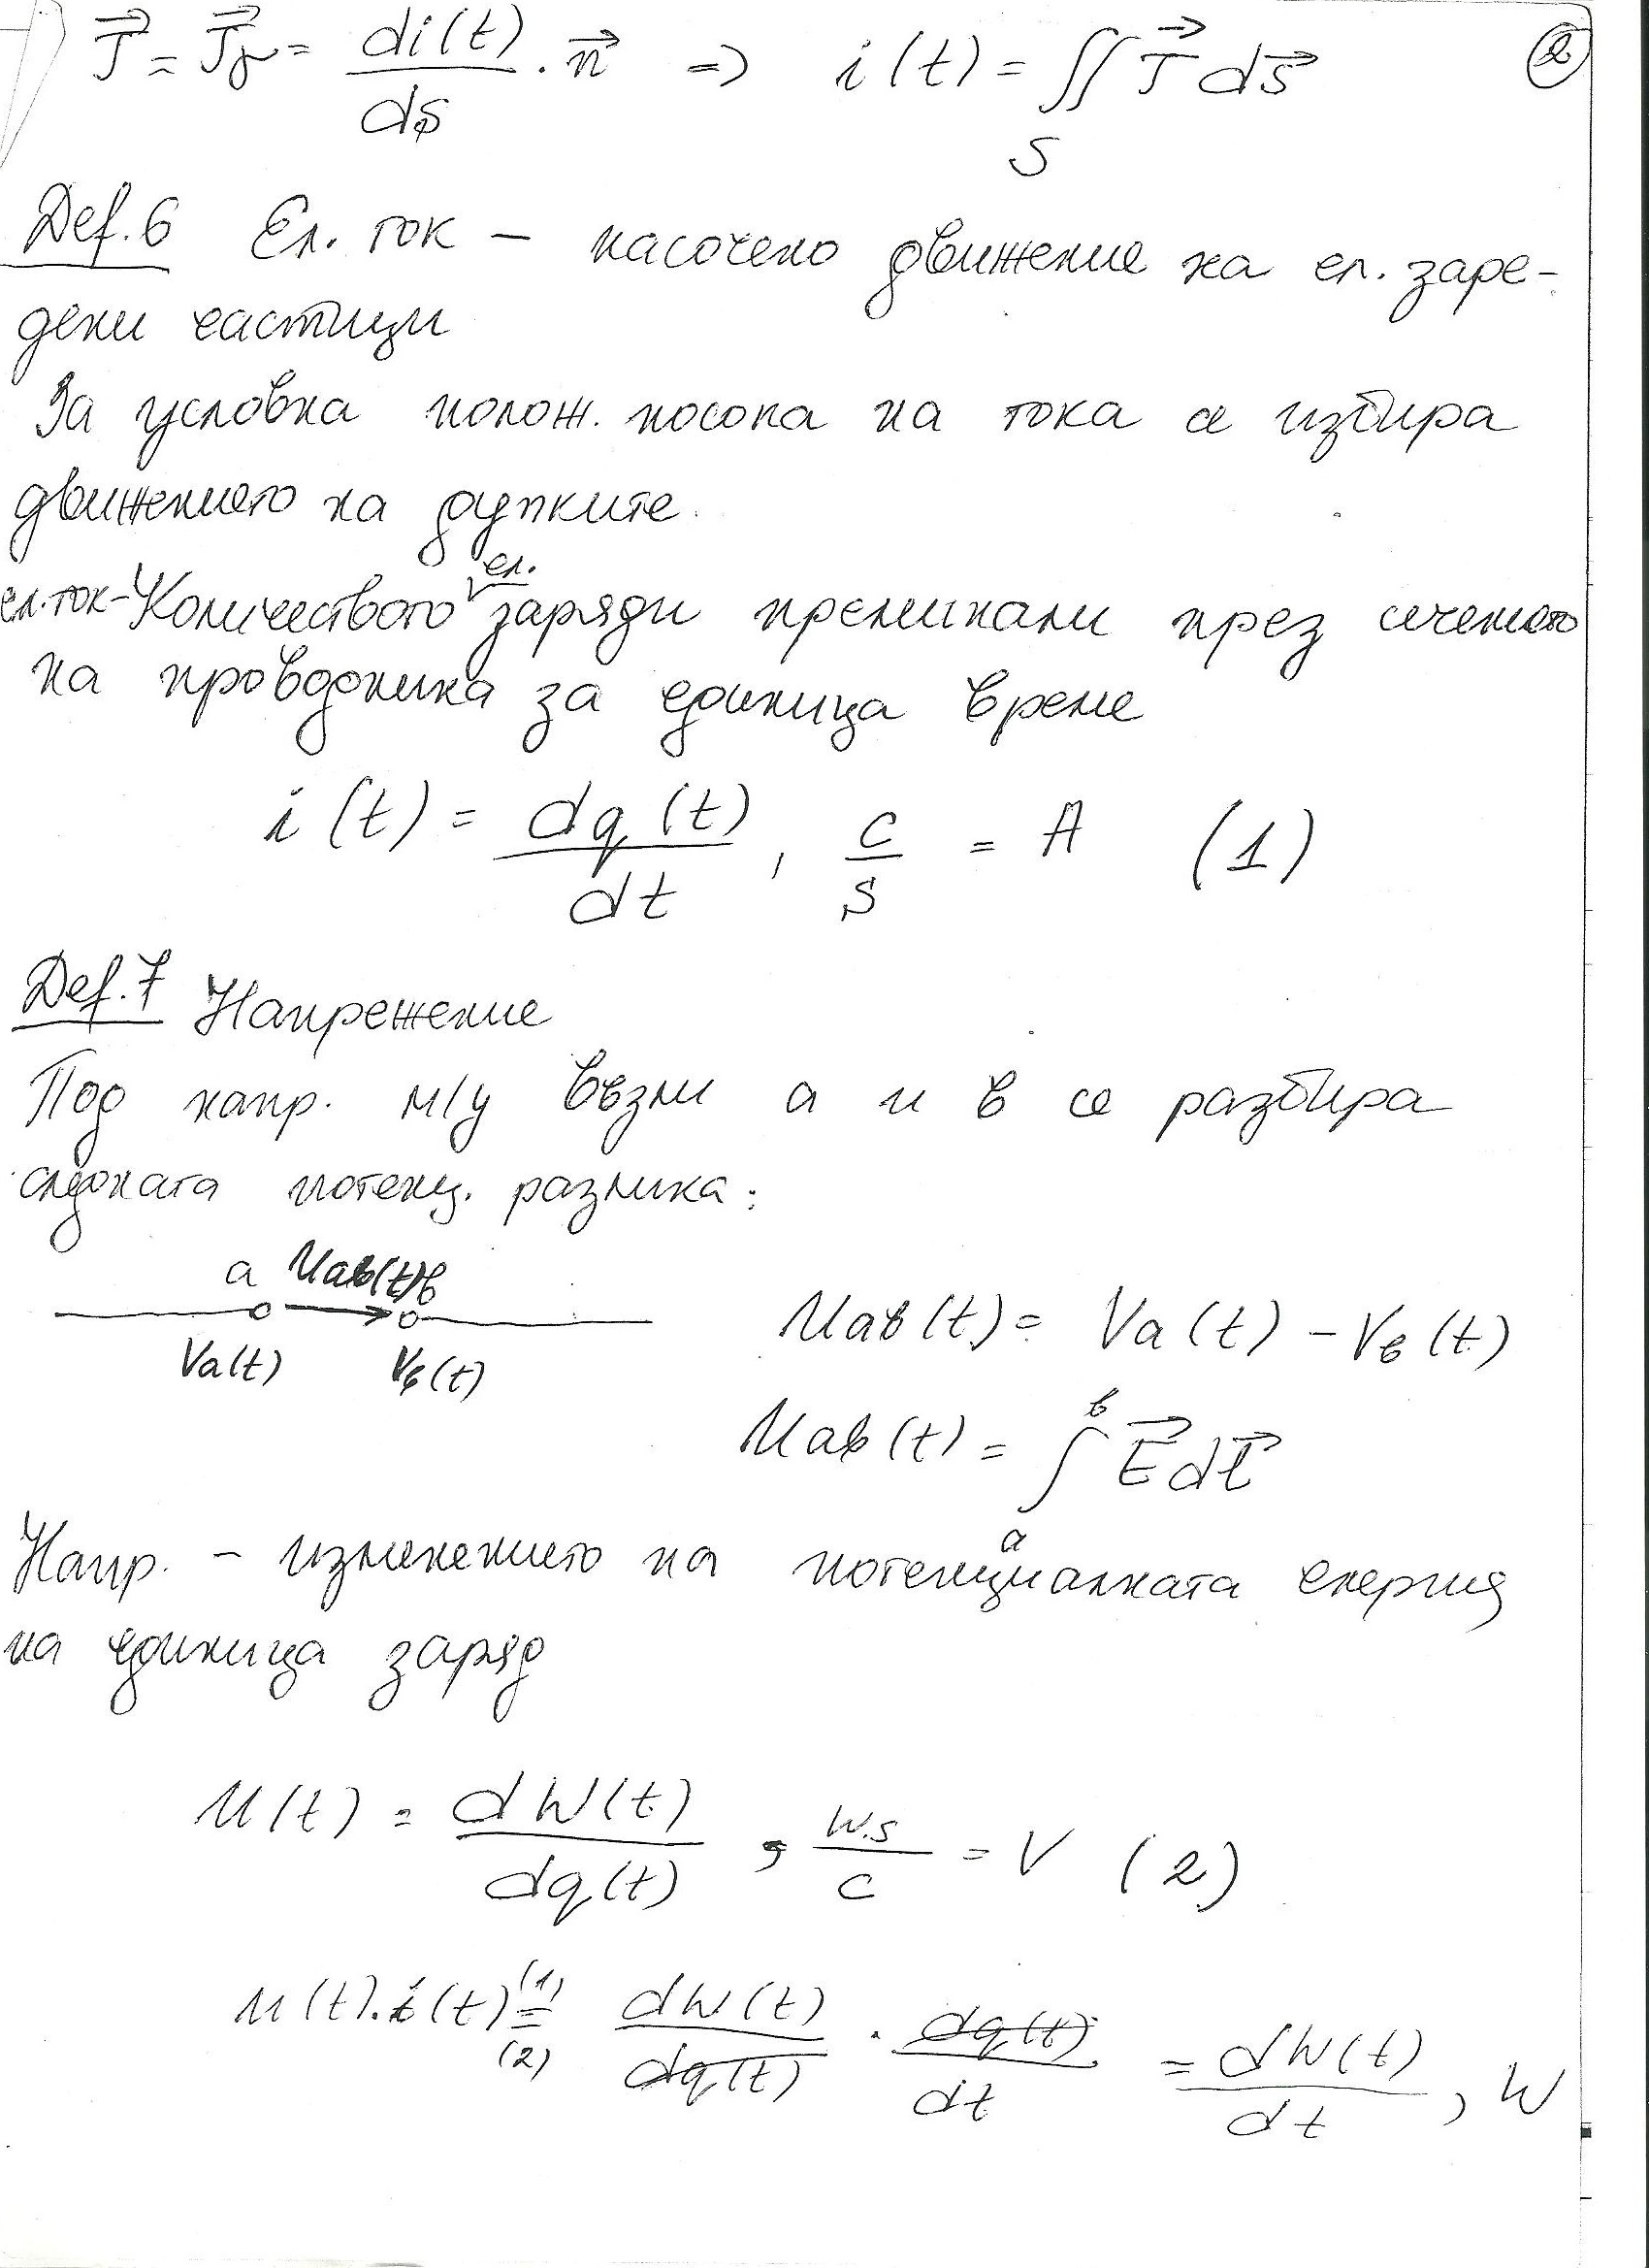 J⃗ = J⃗γ = di(t)/ds · n⃗ => i(t) = ∬_S J⃗ ds⃗ ②
Def. 6 Ел. ток – насочено движение на ел. заре-
дени частици
За условна полож. посока на тока се избира
движението на дупките.
ел. ток - Количеството ел. заряди преминали през сечението
на проводника за единица време
i(t) = dq(t)/dt , C/s = A (1)
Def. 7 Напрежение
Под напр. м/у възли a и в се разбира
следната потенц. разлика:
a Uaв(t) в
Va(t) Vв(t)
Uaв(t) = Va(t) – Vв(t)
Uaв(t) = ∫_a^в E⃗ dl⃗
Напр. – изменението на потенциалната енергия
на единица заряд
U(t) = dW(t)/dq(t) , W.s/C = V (2)
u(t).i(t) (1)=(2) dW(t)/dq(t) · dq(t)/dt = dW(t)/dt , W